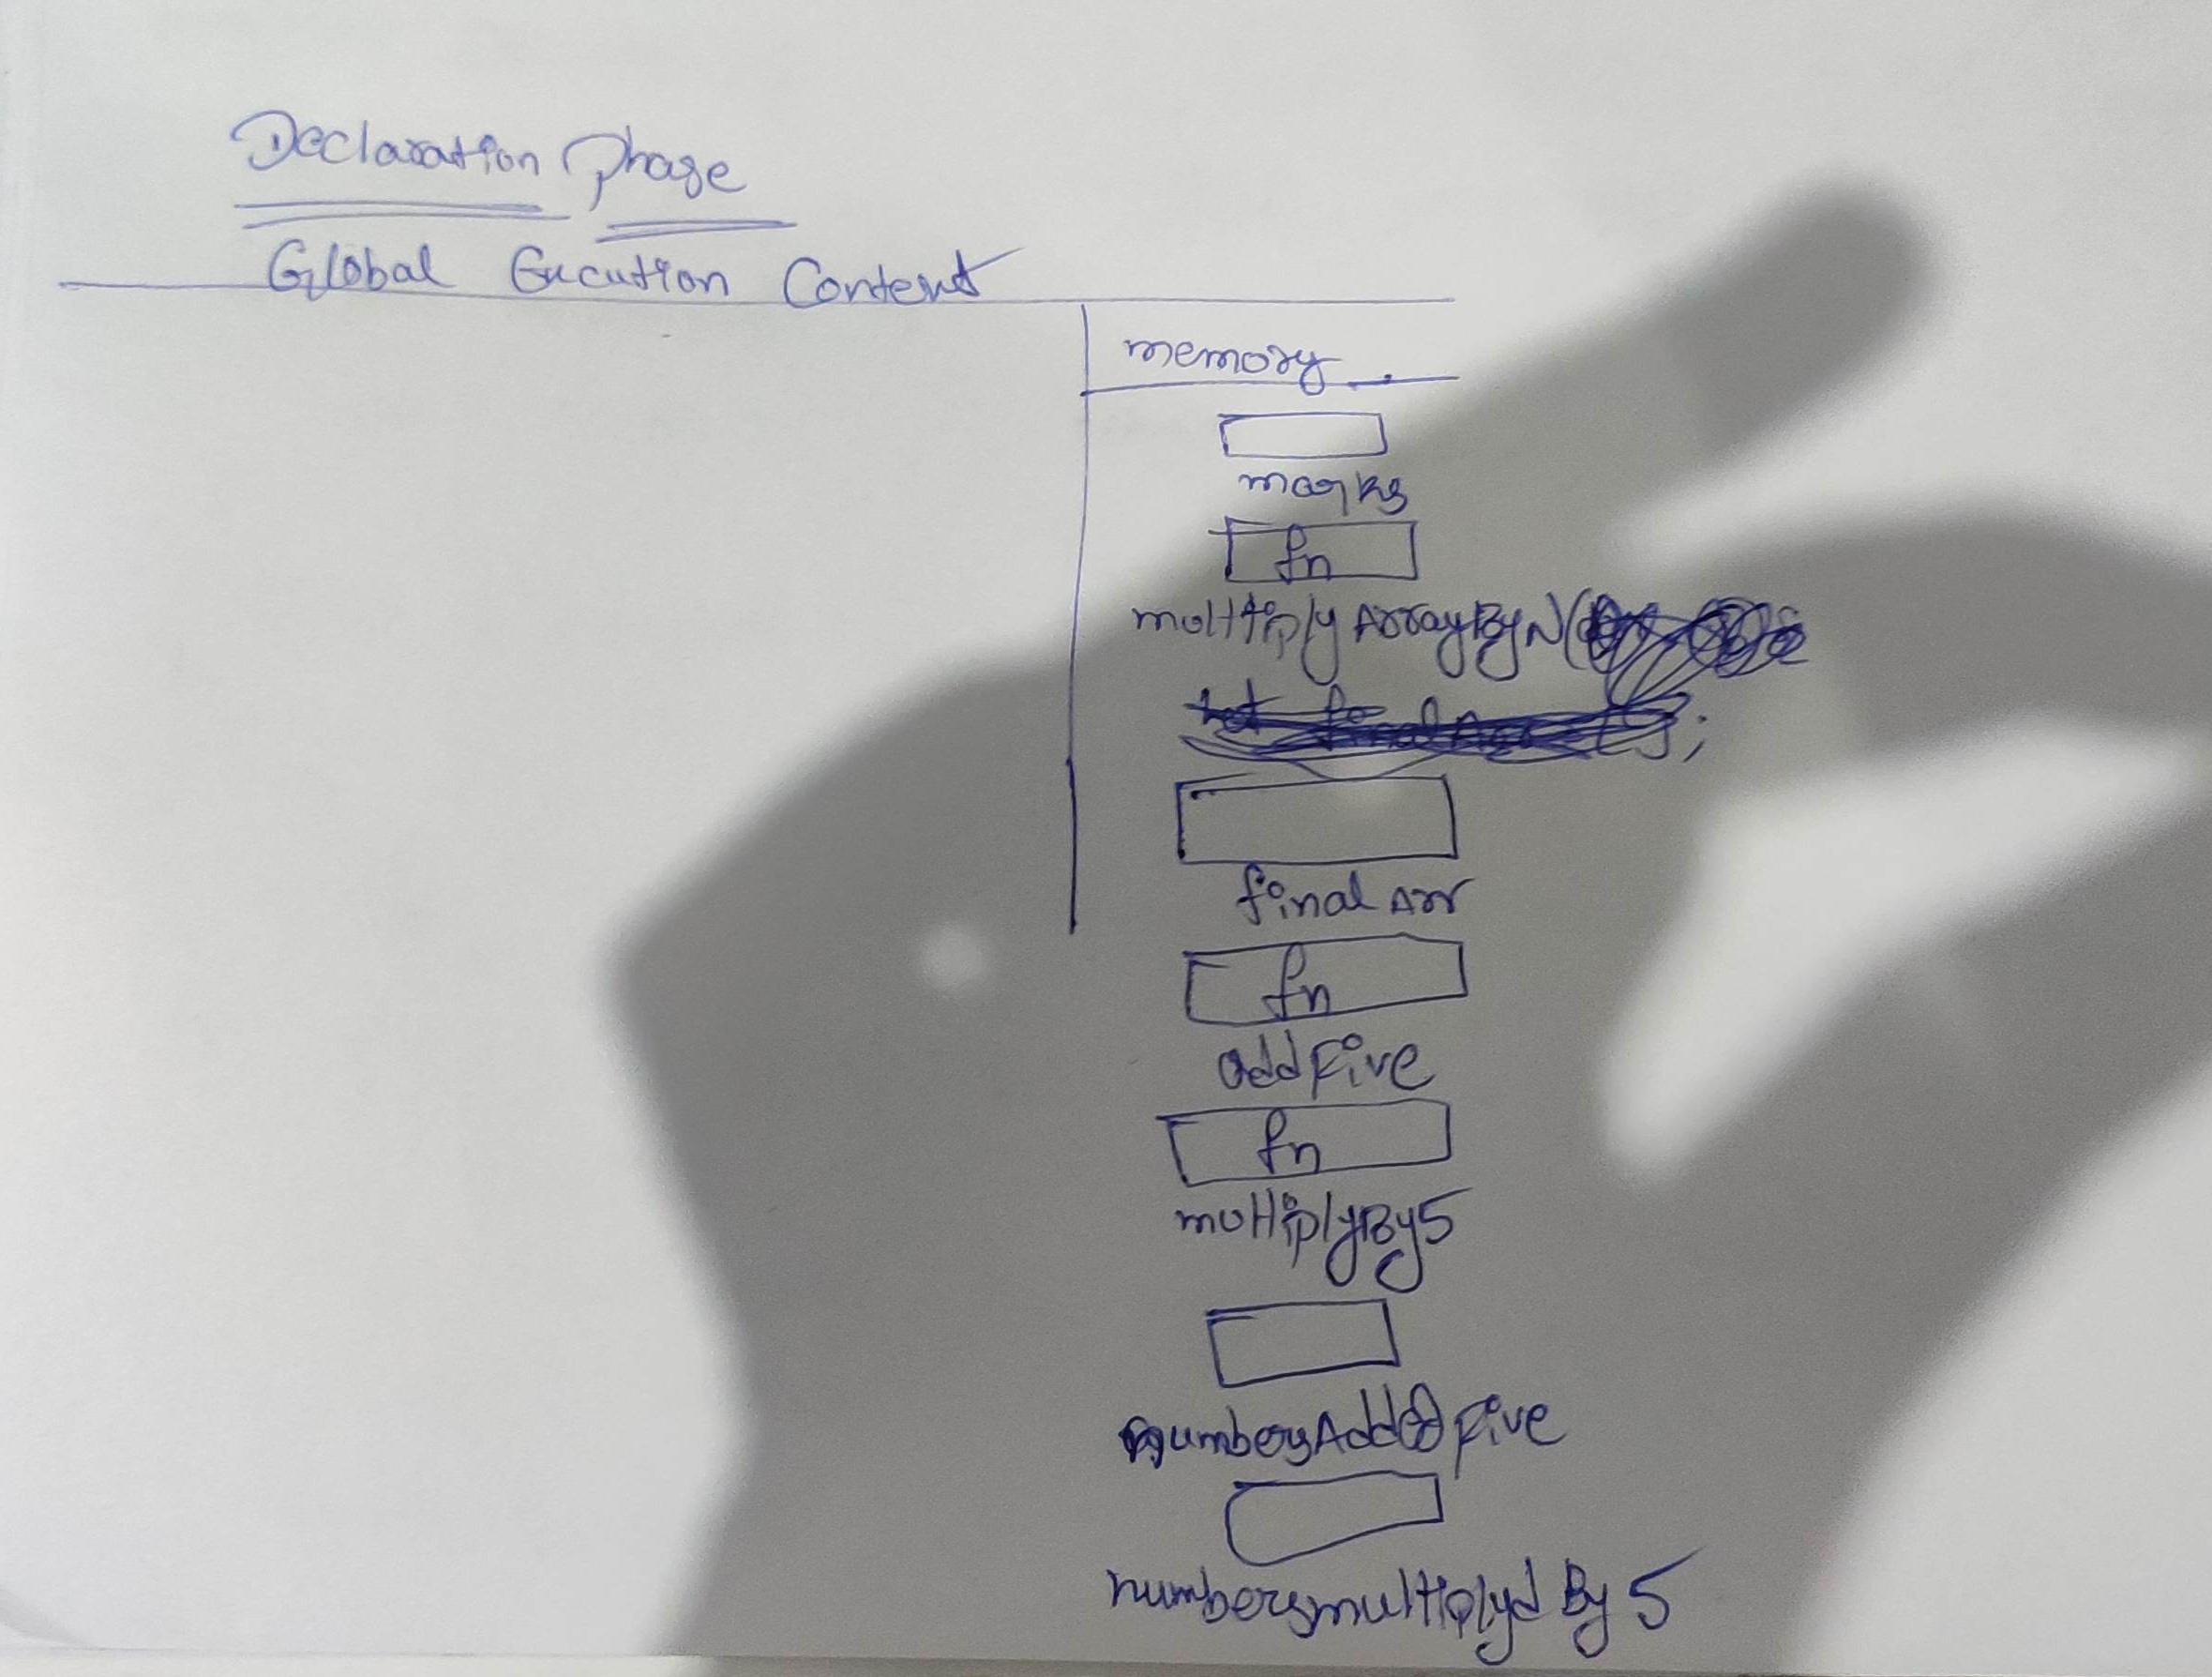 Declaration Phase
Global Execution Context
memory
marks
fn
multiplyArrayByN(
final Arr
fn
addFive
fn
multiplyBy5
numbersAddedFive
numbersmultiplyd By 5